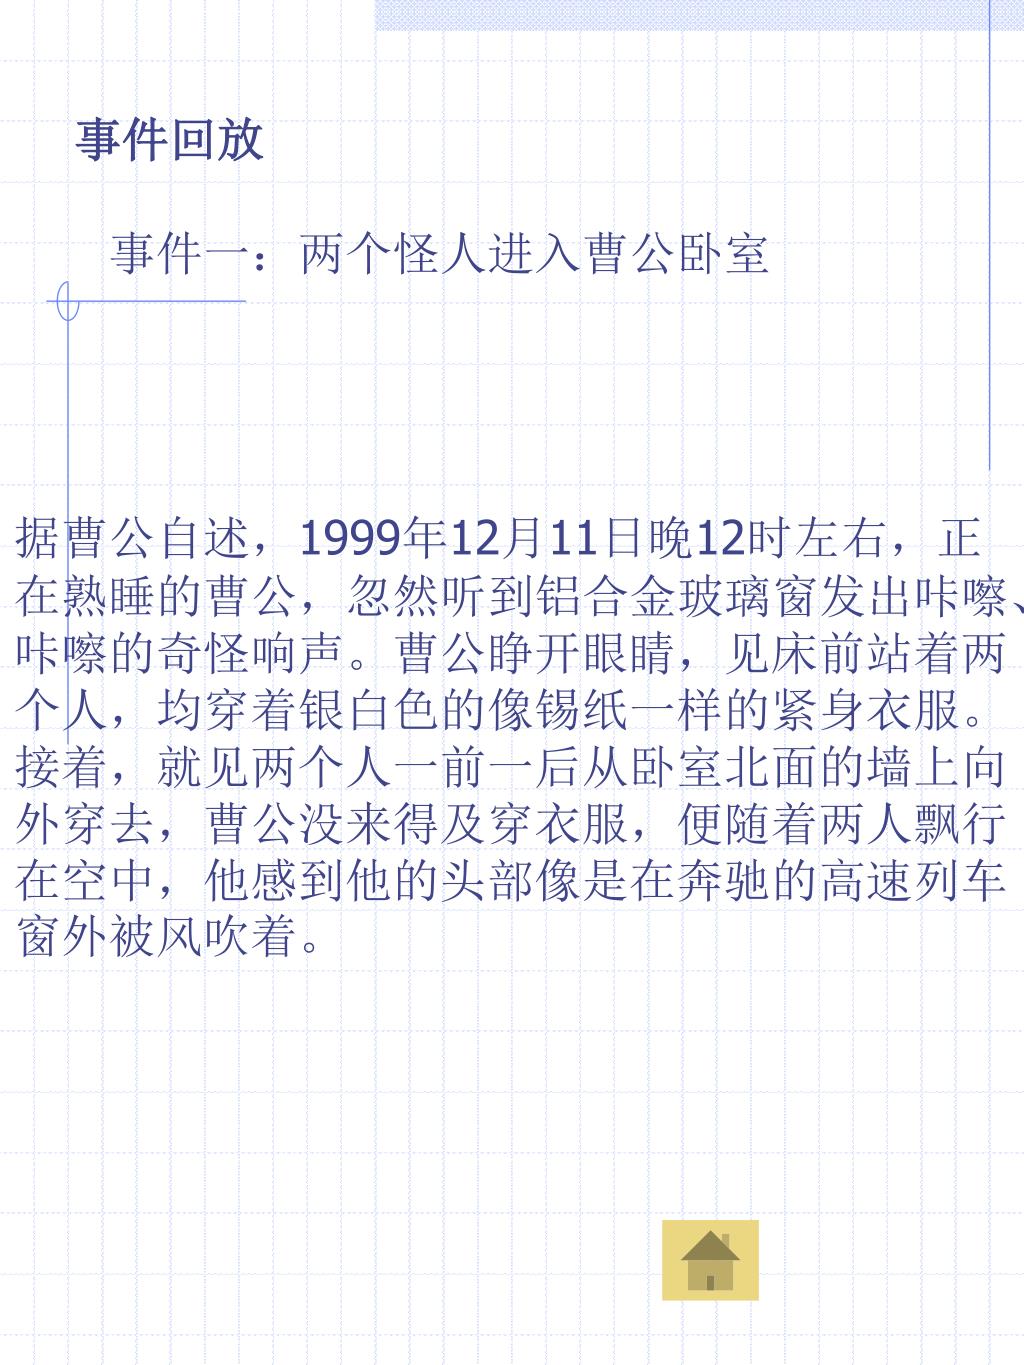 事件回放
事件一：两个怪人进入曹公卧室
据曹公自述，1999年12月11日晚12时左右，正
在熟睡的曹公，忽然听到铝合金玻璃窗发出咔嚓、
咔嚓的奇怪响声。曹公睁开眼睛，见床前站着两
个人，均穿着银白色的像锡纸一样的紧身衣服。
接着，就见两个人一前一后从卧室北面的墙上向
外穿去，曹公没来得及穿衣服，便随着两人飘行
在空中，他感到他的头部像是在奔驰的高速列车
窗外被风吹着。